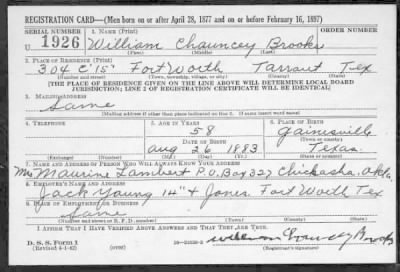 REGISTRATION CARD—(Men born on or after April 28, 1877 and on or before February 16, 1897)
SERIAL NUMBER 1. NAME (Print) ORDER NUMBER
U 1926 William Chauncey Brooks
(First) (Middle) (Last)
2. PLACE OF RESIDENCE (Print)
304 E 15" Fort Worth Tarrant Tex
(Number and street) (Town, township, village, or city) (County) (State)
[THE PLACE OF RESIDENCE GIVEN ON THE LINE ABOVE WILL DETERMINE LOCAL BOARD
JURISDICTION; LINE 2 OF REGISTRATION CERTIFICATE WILL BE IDENTICAL]
3. MAILING ADDRESS
Same
[Mailing address if other than place indicated on line 2. If same insert word same]
4. TELEPHONE 5. AGE IN YEARS 6. PLACE OF BIRTH
58 Gainesville
DATE OF BIRTH (Town or county)
Aug 26 1883 Texas
(Exchange) (Number) (Mo.) (Day) (Yr.) (State or country)
7. NAME AND ADDRESS OF PERSON WHO WILL ALWAYS KNOW YOUR ADDRESS
Mrs Maurine Lambert P.O. Box 327 Chickasha, Okla
8. EMPLOYER'S NAME AND ADDRESS
Jack Young 14" & Jones. Fort Worth Tex
9. PLACE OF EMPLOYMENT OR BUSINESS
Same
(Number and street or R. F. D. number) (Town) (County) (State)
I AFFIRM THAT I HAVE VERIFIED ABOVE ANSWERS AND THAT THEY ARE TRUE.
D. S. S. Form 1 William Chauncey Brooks
(Revised 4-1-42) (over) (Registrant's signature)